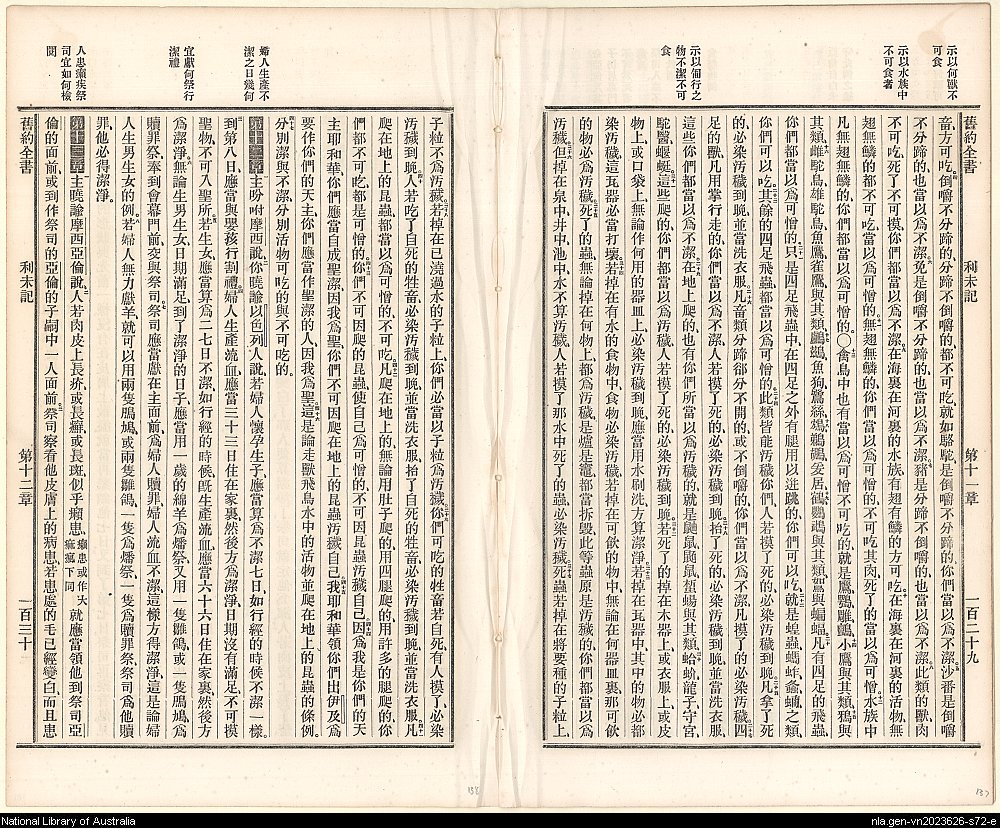 示以何獸不
可食
示以水族中
不可食者
示以匍行之
物不潔不可
食
舊約全書 利未記 第十一章 一百二十九
畜、方可吃、倒嚼不分蹄的、分蹄不倒嚼的、都不可吃、就如駱駝、是倒嚼不分蹄的、你們當以爲不潔、沙番是倒嚼
不分蹄的、也當以爲不潔、兔是倒嚼不分蹄的、也當以爲不潔、豬是分蹄不倒嚼的、也當以爲不潔、此類的獸、肉
不可吃、死了不可摸、你們都當以爲不潔、在海裏在河裏的水族、有翅有鱗的、方可吃、在海裏在河裏的活物、無
翅無鱗的、都不可吃、當以爲可憎的、無翅無鱗的、你們當以爲可憎的、不可吃其肉、死了的當以爲可憎、水族中
凡無翅無鱗的、你們都當以爲可憎的、〇禽鳥中也有當以爲可憎不可吃的、就是鷹、鸇、雕、鷂、小鷹、與其類、鴉與
其類、雌駝鳥、雄駝鳥、魚鷹、雀鷹、與其類、
你們都當以爲可憎的、只是四足飛蟲中、在四足之外有腿用以迸跳的、你們可以吃、就是蝗蟲、螞蚱、蟊、蛹之類、
你們可以吃、其餘的四足飛蟲、都當以爲可憎的、此類皆能污穢你們、人若摸了死的、必染污穢到晚、凡拿了死
的、必染污穢到晚、並當洗衣服、凡畜類分蹄卻分不開的、或不倒嚼的、你們當以爲不潔、凡摸了的、必染污穢、四
足的獸、凡用掌行走的、你們當以爲不潔、人若摸了死的、必染污穢到晚、抬了死的、必染污穢到晚、並當洗衣服、
這些你們都當以爲不潔、在地上爬的、也有你們所當以爲污穢的、就是
這些爬蟲、你們都當以爲污穢、人若摸了死的、必染污穢到晚、若死了的掉在木器上、或衣服上、或皮
物上、或口袋上、無論作何用的器皿上、必染污穢到晚、應當用水刷洗、方算潔淨、若掉在瓦器中、其中的物必都
污穢、這瓦器必當打壞、若掉在有水的食物中、食物必染污穢、若掉在可飲的物中、無論在何器皿裏、那可飲
的物必爲污穢、死了的蟲、無論掉在何物上、都爲污穢、是爐是竈、都當拆毀、此等蟲原是污穢的、你們都當以爲
污穢、但掉在泉中井中池中、水不算污穢、人若摸了那水中死了的蟲、必染污穢、死蟲若掉在將要種的子粒上、
婦人生產不
潔之日幾何
宜獻何祭行
潔禮
人患癩疾祭
司宜如何檢
閱
子粒不爲污穢、若掉在已澆過水的子粒上、你們必當以子粒爲污穢、你們可吃的牲畜、若自死、有人摸了、必染
污穢到晚、人若吃了自死的牲畜、必染污穢到晚、並當洗衣服、抬了自死的牲畜、必染污穢到晚、並當洗衣服、凡
爬在地上的昆蟲、都當以爲可憎的、不可吃、凡爬在地上的、無論用肚子爬的、用四腿爬的、用許多的腿爬的、你
們都不可吃、都是可憎的、你們不可因爬的昆蟲、使自己爲可憎的、不可因昆蟲污穢自己、因爲我是你們的天
主耶和華、你們應當自成聖潔、因我爲聖、你們不可因爬在地上的昆蟲、污穢自己、我耶和華領你們出伊及、爲
要作你們的天主、你們應當作聖潔的人、因我爲聖、這是論走獸飛鳥、水中的活物、並爬在地上的昆蟲的條例、
分別潔與不潔、分別活物可吃的與不可吃的、
第十二章 主吩咐摩西說、你曉諭以色列人說、若婦人懷孕生子、應當算爲不潔七日、如行經的時候不潔一樣、
到第八日應當與嬰孩行割禮、婦人生產流血、應當三十三日住在家裏、然後方爲潔淨、日期沒有滿足、不可摸
聖物、不可入聖所、若生女、應當算爲二七日不潔、如行經的時候、既生產流血、應當六十六日住在家裏、然後方
爲潔淨、無論生男生女、日期滿足、到了潔淨的日子、應當用一歲的綿羊爲燔祭、又用一隻雛鴿、或一隻鳲鳩、爲
贖罪祭、牽到會幕門前、交與祭司、祭司應當獻在主面前、爲婦人贖罪、婦人流血不潔、這樣方得潔淨、這是論婦
人生男生女的例、若婦人無力獻羊、就可以用兩隻鳲鳩、或兩隻雛鴿、一隻爲燔祭、一隻爲贖罪祭、祭司爲他贖
罪、他必得潔淨、
第十三章 主曉諭摩西亞倫說、人若肉皮上長疥、或長癬、或長斑、似乎癩患、癩患或作大痲瘋下同 就應當領他到祭司亞
倫的面前、或到作祭司的亞倫的子嗣中一人面前、祭司察看他皮膚上的病患、若患處的毛已經變白、而且患
舊約全書 利未記 第十二章 一百三十
138
137
National Library of Australia
nla.gen-vn2023626-s72-e